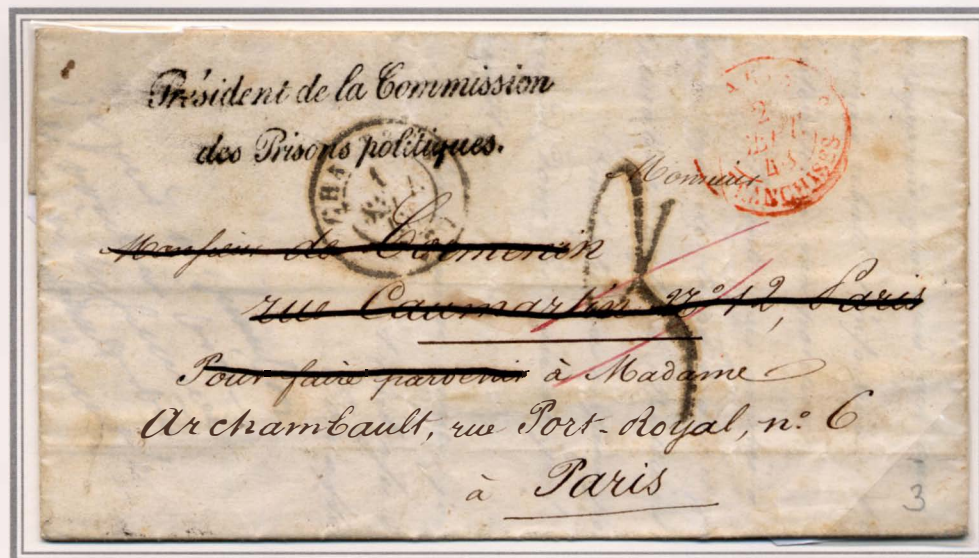 Président de la Commission
des Prisons politiques.
Monsieur
Monsieur de Cormenin
rue Caumartin nº 12, Paris
Pour faire parvenir à Madame
Archambault, rue Port-Royal, nº 6
à Paris
FRANCHISES
3